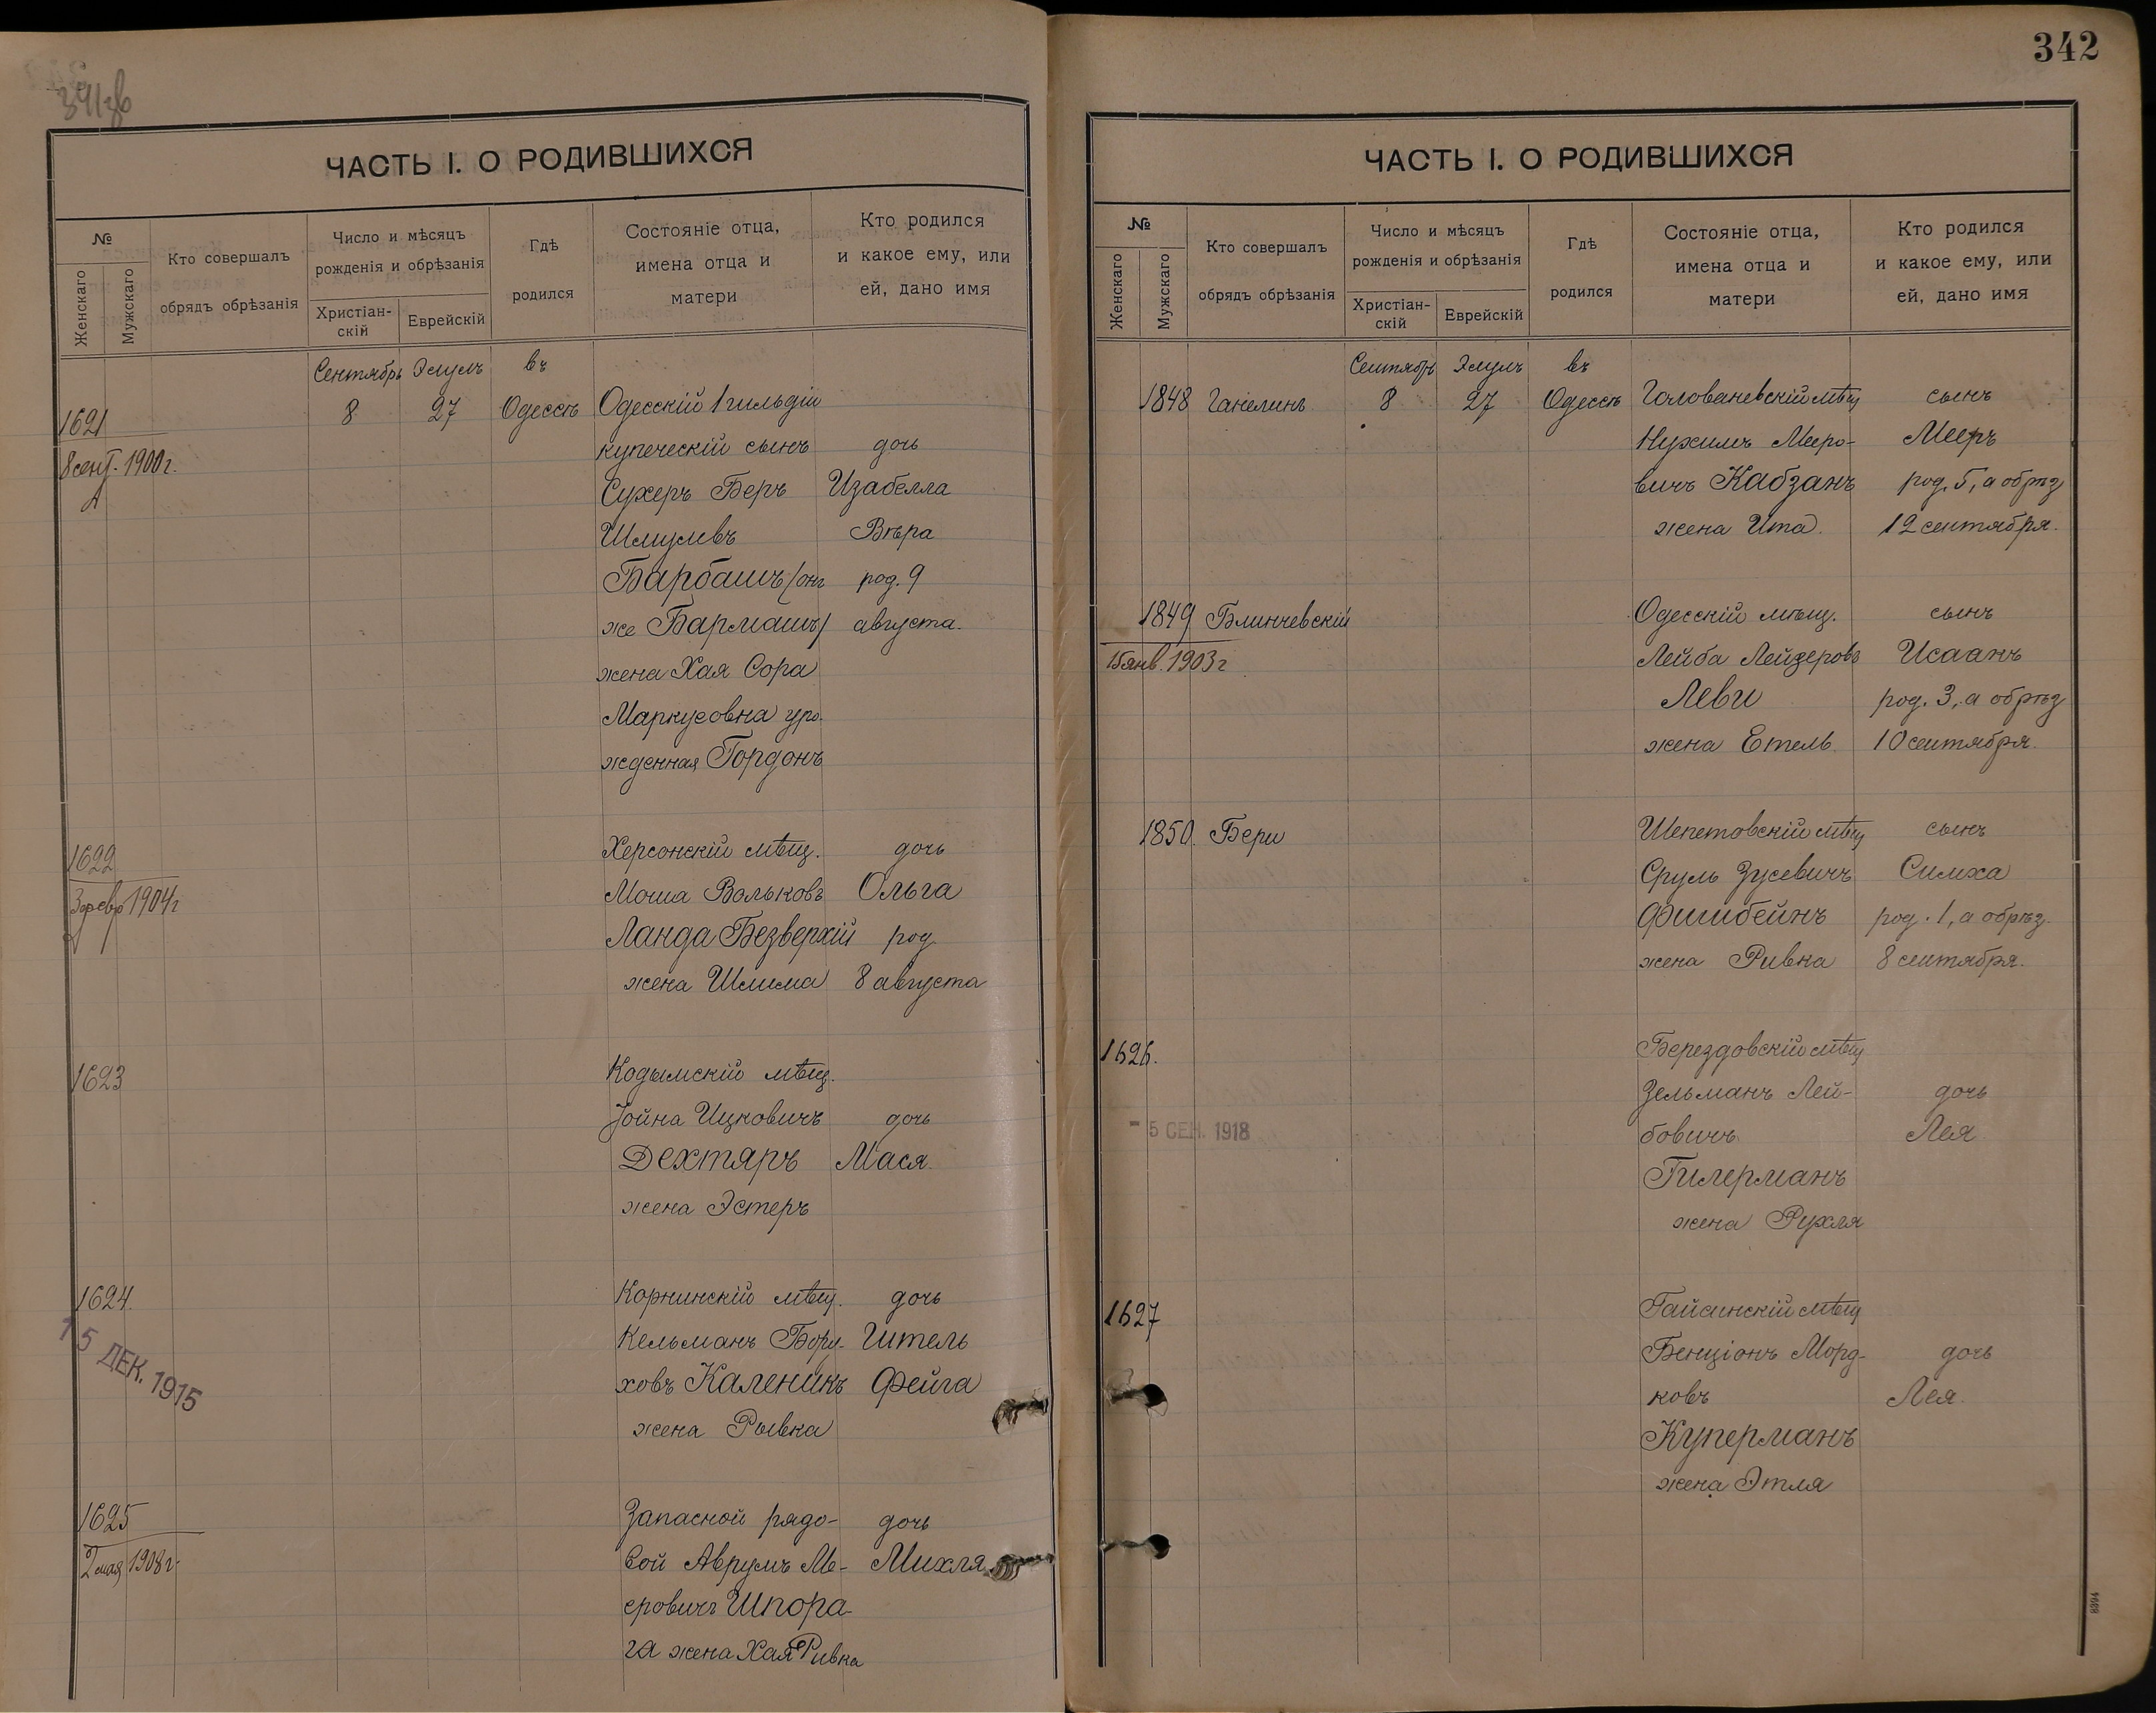 341об
ЧАСТЬ I. О РОДИВШИХСЯ
№
Женскаго
Мужскаго
Кто совершалъ
обрядъ обрѣзанія
Число и мѣсяцъ
рожденія и обрѣзанія
Христіан-
скій
Еврейскій
Гдѣ
родился
Состояніе отца,
имена отца и
матери
Кто родился
и какое ему, или
ей, дано имя
Сентябрь Элулъ въ
1621 8 27 Одессѣ Одесскій 1 гильдіи
8 сент. 1900 г. купеческій сынъ дочь
Сухеръ Беръ Изабелла
Шмулевъ Вѣра
Барбашъ (онъ род. 9
же Бармашъ) августа.
жена Хая Сора
Маркусовна уро-
жденная Гордонъ
1622 Херсонскій мѣщ. дочь
3 февр 1904 г Моша Вольковъ Ольга
Ланда Безверхій род.
жена Шлима 8 августа
1623 Кодымскій мѣщ.
Іойна Ицковичъ дочь
Дехтяръ Мася.
жена Эстеръ
1624. Корнинскій мѣщ. дочь
15 ДЕК. 1915
Кельманъ Бору- Итель
ховъ Каленикъ Фейга
жена Рывка
1625 Запасной рядо- дочь
2 мая 1908 г. вой Аврумъ Ме- Михля
еровичъ Шпора-
га жена Хая Ривка
342
ЧАСТЬ I. О РОДИВШИХСЯ
№
Женскаго
Мужскаго
Кто совершалъ
обрядъ обрѣзанія
Число и мѣсяцъ
рожденія и обрѣзанія
Христіан-
скій
Еврейскій
Гдѣ
родился
Состояніе отца,
имена отца и
матери
Кто родился
и какое ему, или
ей, дано имя
Сентябрь Элулъ въ
1848 Ганелинъ 8 27 Одессѣ Голованевскій мѣщ сынъ
Нухимъ Меро- Мееръ
вичъ Кабзанъ род. 5, а обрѣз
жена Ита. 12 сентября.
1849 Блинчевскій Одесскій мѣщ. сынъ
15 янв. 1903 г Лейба Лейзеровъ Исаакъ
Леви род. 3, а обрѣз
жена Етель 10 сентября.
1850. Бери Шепетовскій мѣщ сынъ
Сруль Зусевичъ Симха
Фишбейнъ род. 1, а обрѣз.
жена Ривка 8 сентября.
1626. Берездовскій мѣщ
Зельманъ Лей- дочь
- 5 СЕН. 1918 бовичъ Лея
Гилерманъ
жена Рухля
1627 Гайсинскій мѣщ
Бенціонъ Морд- дочь
ковъ Лея.
Куперманъ
жена Этля
8394